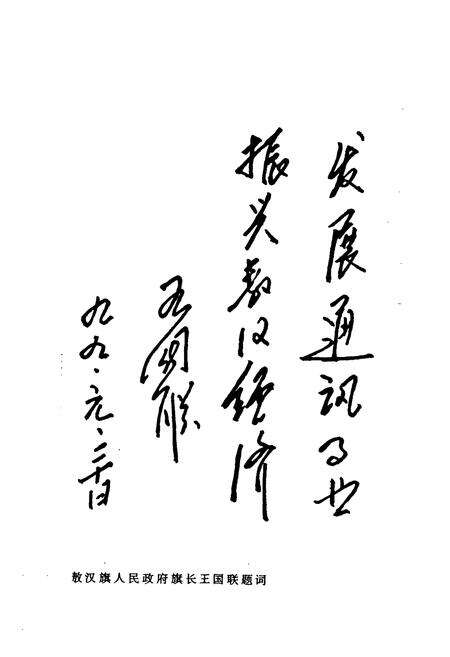 发展通讯事业
振兴敖汉经济
王国联
九九、元、二十日
敖汉旗人民政府旗长王国联题词